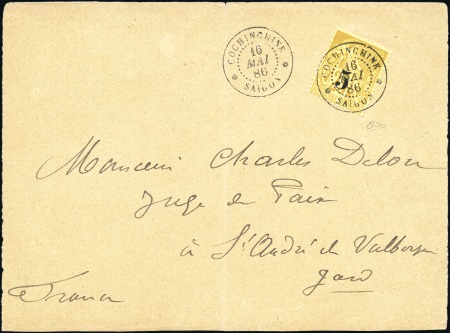 COCHINCHINE
16
MAI
86
SAIGON
COCHINCHINE
16
MAI
86
SAIGON
5
Monsieur Charles
Juge de Paix
à St André de Valborgne
Gard
France